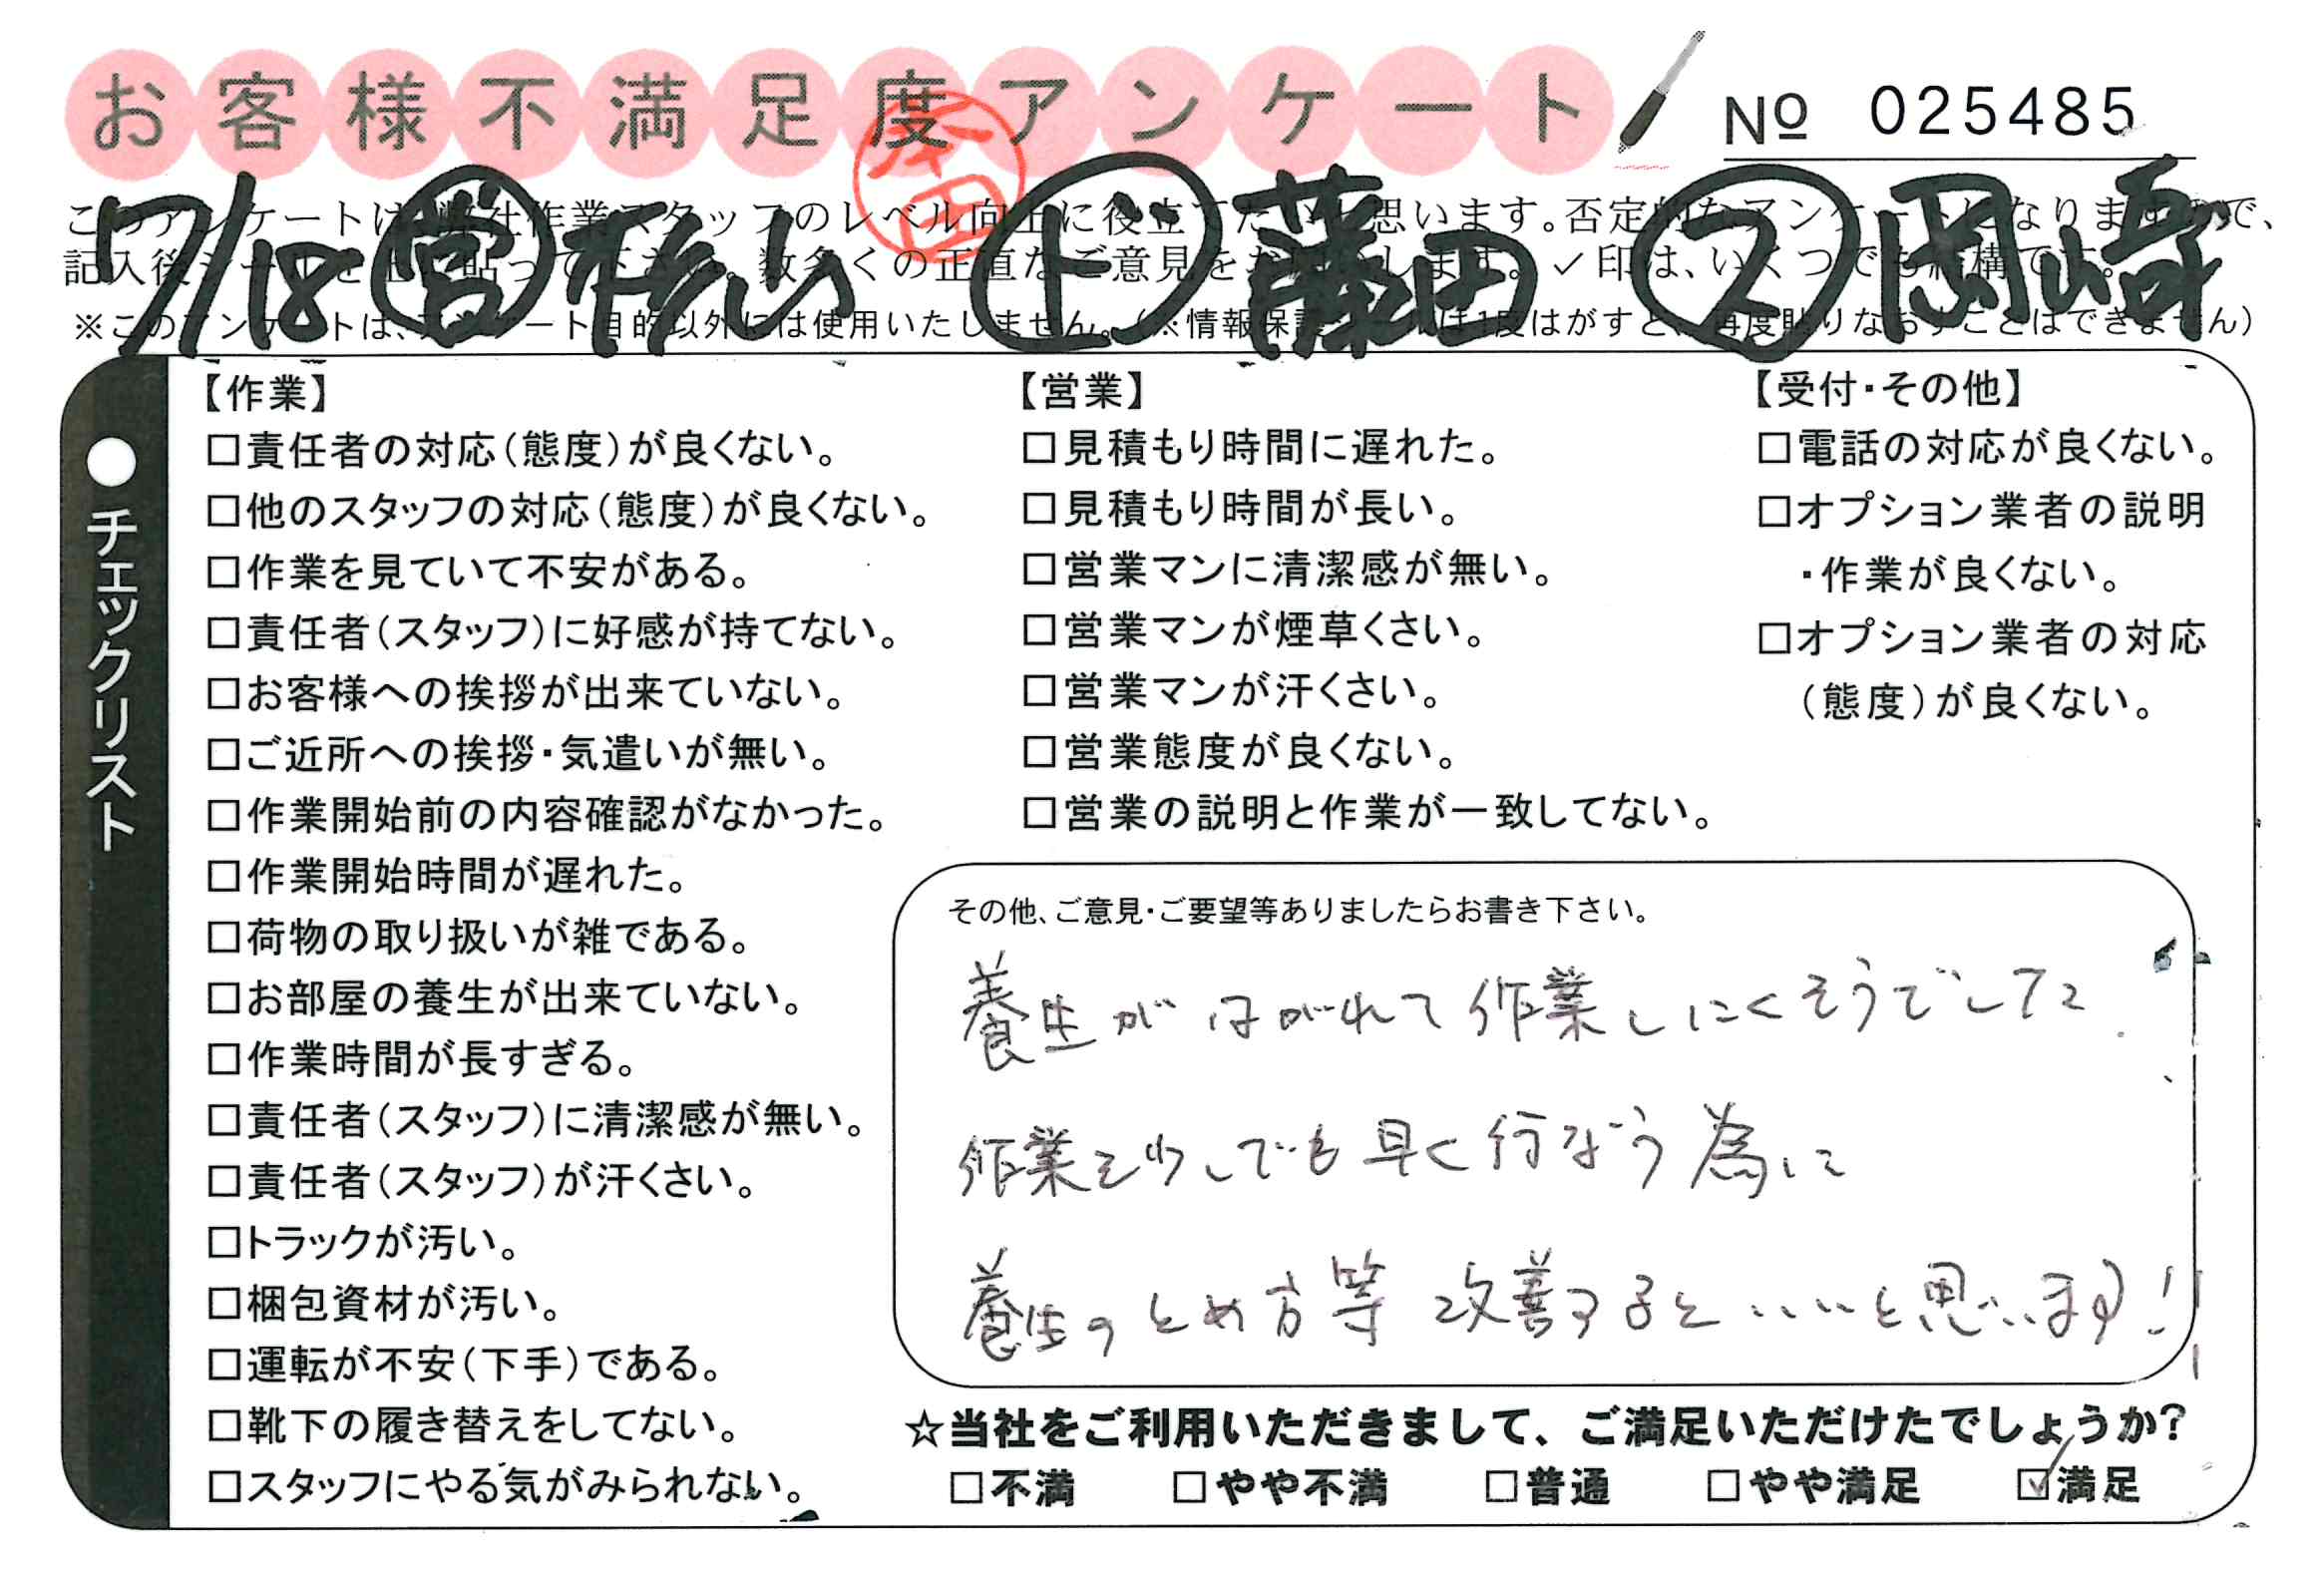 お客様不満足度アンケート
№ 025485
本田
7/18 営 杉山 ト 藤田 ス 岡崎
このアンケートは、弊社作業スタッフのレベル向上に役立てたいと思います。否定的なアンケートになりますので、
記入後シールを上に貼って下さい。数多くの正直なご意見をお願いします。✓印は、いくつでも結構です。
※このアンケートは、アンケート目的以外には使用いたしません。(※情報保護シールは1度はがすと、再度貼りなおすことはできません)
●チェックリスト
【作業】
□責任者の対応(態度)が良くない。
□他のスタッフの対応(態度)が良くない。
□作業を見ていて不安がある。
□責任者(スタッフ)に好感が持てない。
□お客様への挨拶が出来ていない。
□ご近所への挨拶・気遣いが無い。
□作業開始前の内容確認がなかった。
□作業開始時間が遅れた。
□荷物の取り扱いが雑である。
□お部屋の養生が出来ていない。
□作業時間が長すぎる。
□責任者(スタッフ)に清潔感が無い。
□責任者(スタッフ)が汗くさい。
□トラックが汚い。
□梱包資材が汚い。
□運転が不安(下手)である。
□靴下の履き替えをしてない。
□スタッフにやる気がみられない。
【営業】
□見積もり時間に遅れた。
□見積もり時間が長い。
□営業マンに清潔感が無い。
□営業マンが煙草くさい。
□営業マンが汗くさい。
□営業態度が良くない。
□営業の説明と作業が一致してない。
【受付・その他】
□電話の対応が良くない。
□オプション業者の説明
・作業が良くない。
□オプション業者の対応
(態度)が良くない。
その他、ご意見・ご要望等ありましたらお書き下さい。
養生がはがれて作業しにくそうでした.
作業を少しでも早く行なう為に
養生のとめ方等 改善するといいと思います!!
☆当社をご利用いただきまして、ご満足いただけたでしょうか?
□不満 □やや不満 □普通 □やや満足 ☑満足